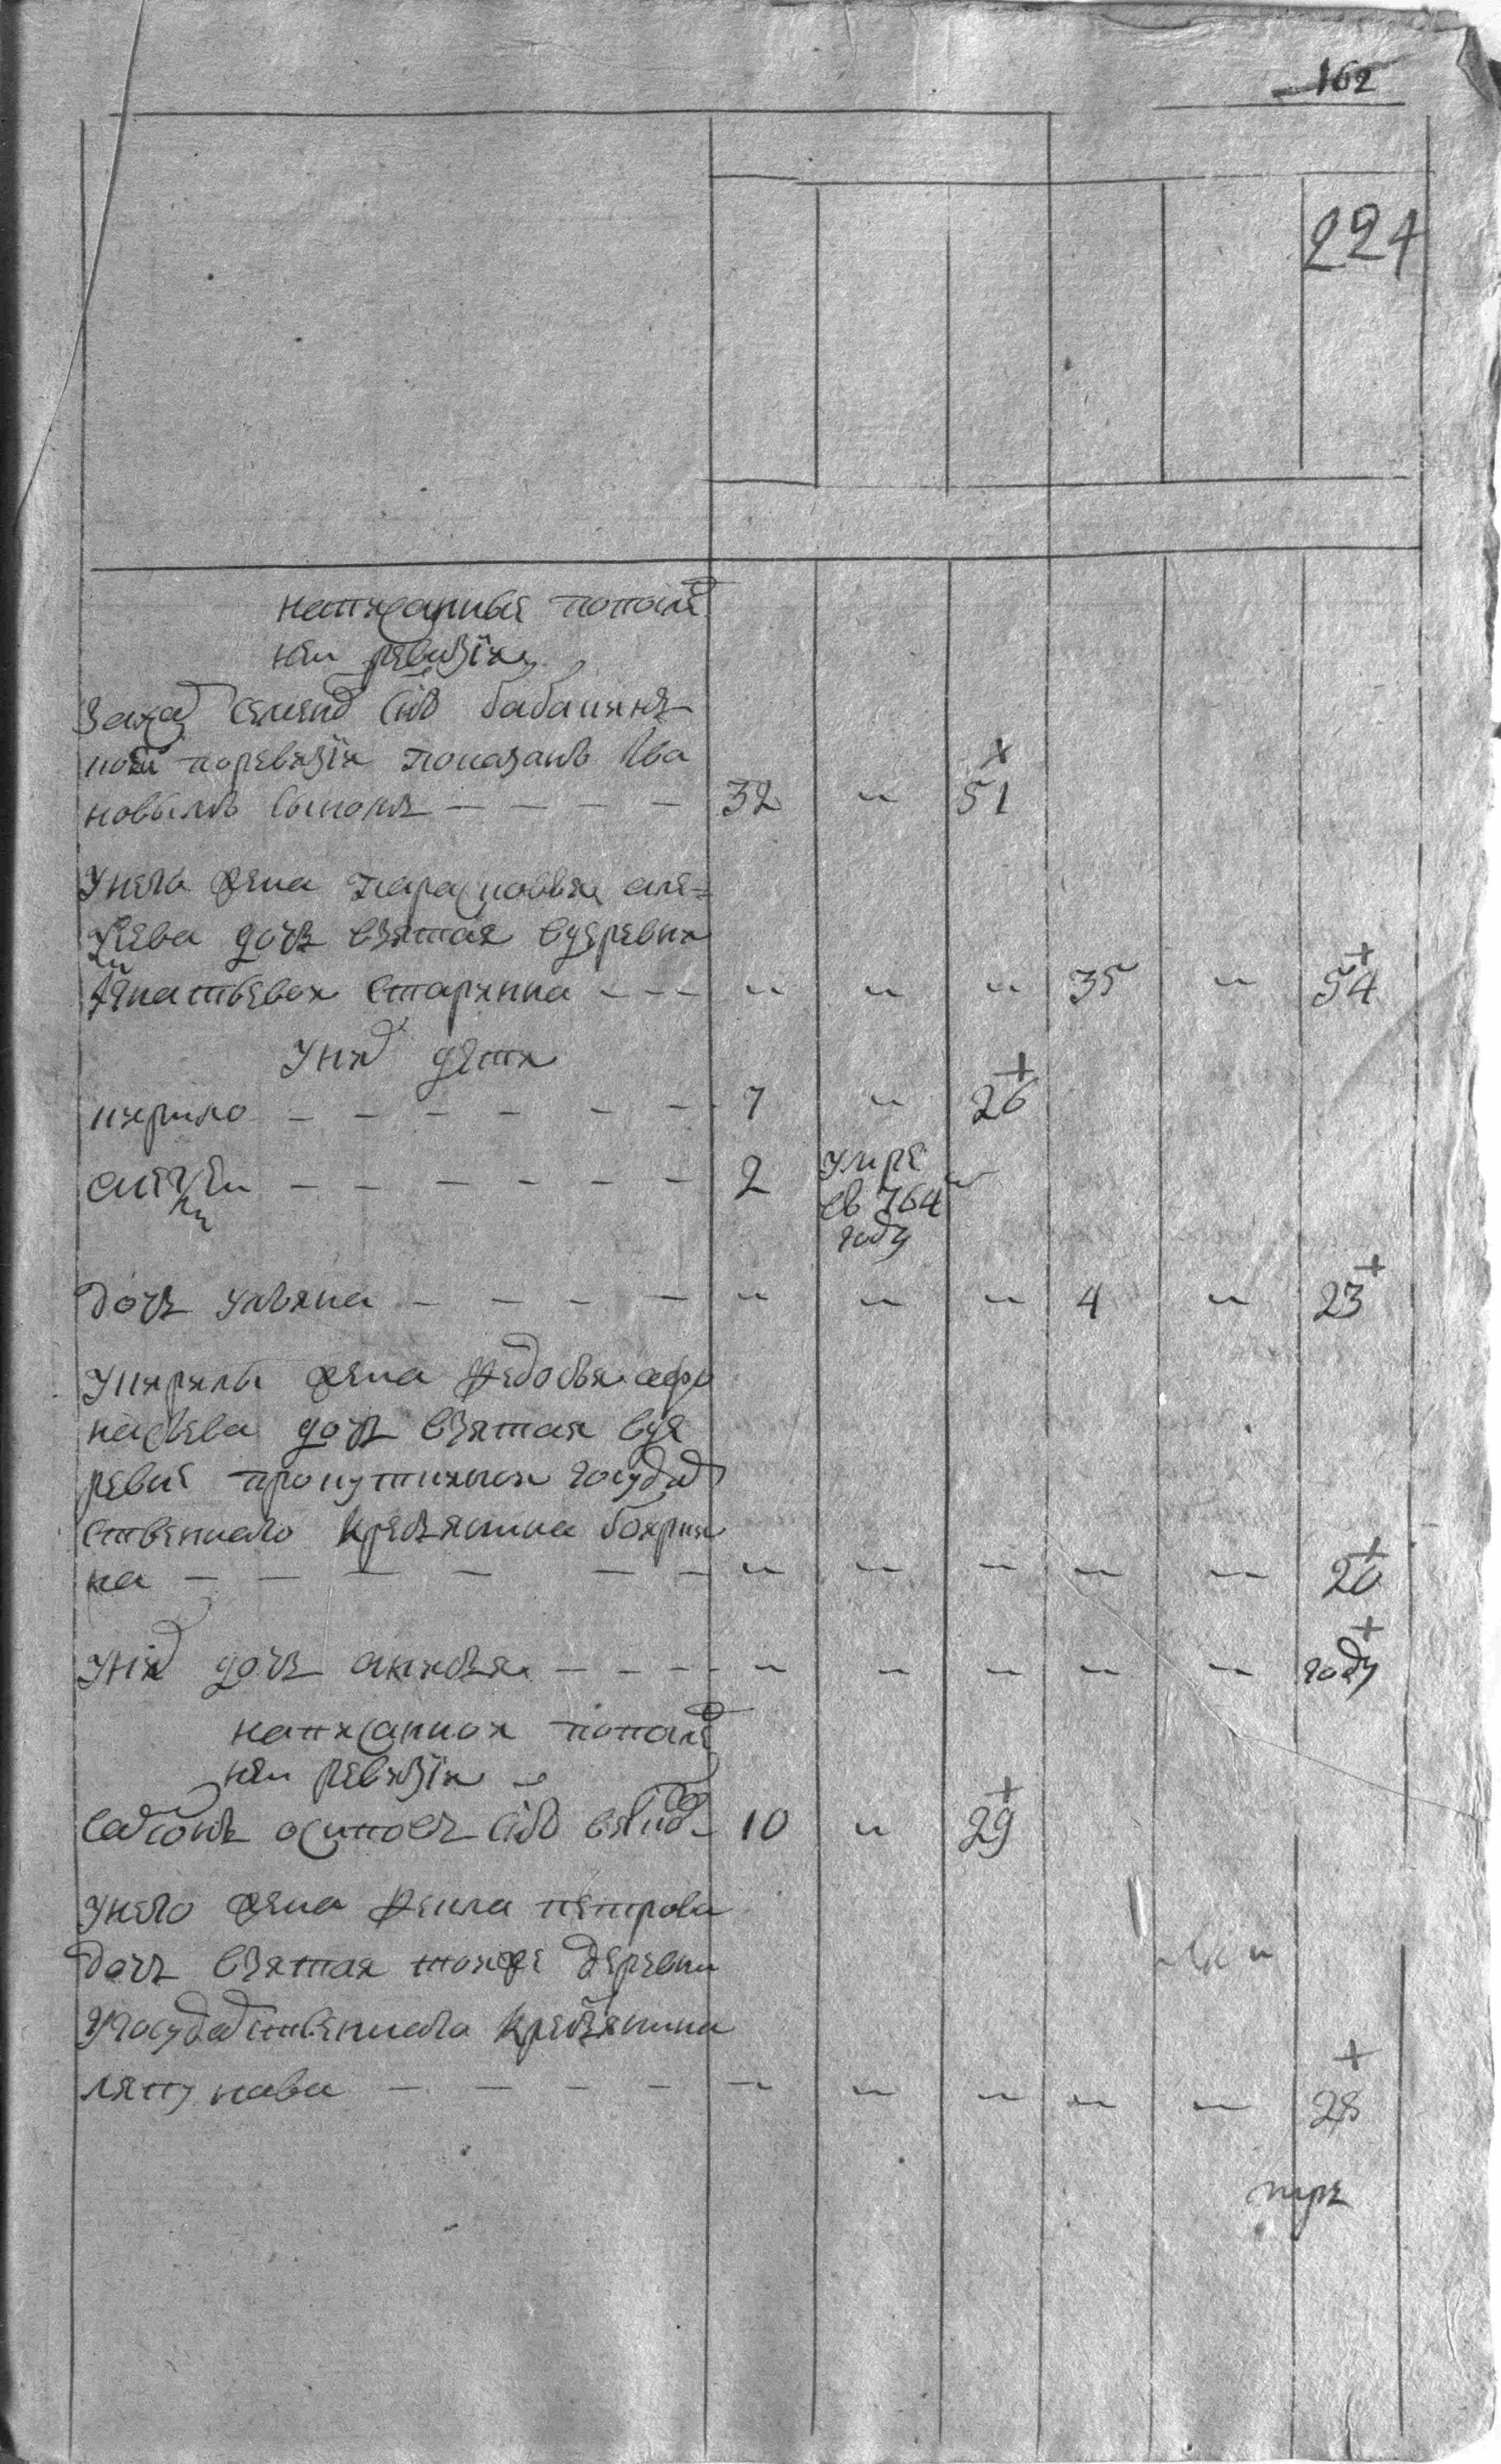 162
224
написанныя попослѣд
ней ревизіи
Захар Семенов снъ бабанинъ
ной поревизіи показанъ Ива
новымъ сыномъ 32 " 51
Унего жена парасковья але=
ксеева дочь взятая вдеревни
игнатьевой старинна " " " 35 " 54
Уних дети
кирило 7 " 26
алексеи 2 умре
в 764
году
дочь ульяна " " " 4 " 23
Укирилы жена федосья афо
насьева дочь взятая вде
ревне государ
ственнаго крестьянина бояркин
на " " " " " 20
Уних дочь анисья " " " " " году
написанной попослед
ней ревизіи
осиповъ снъ 10 " 29
Унего жена фекла петрова
дочь взятая тояже деревни
угосударственнаго крестьянина
ляпунова " " " " " 28
три